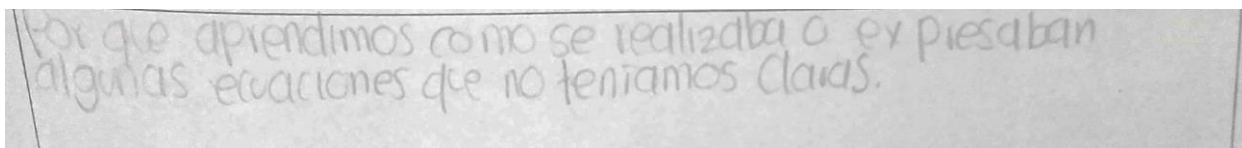 Por que aprendimos como se realizaba o expresaban
algunas ecuaciones que no teniamos claras.